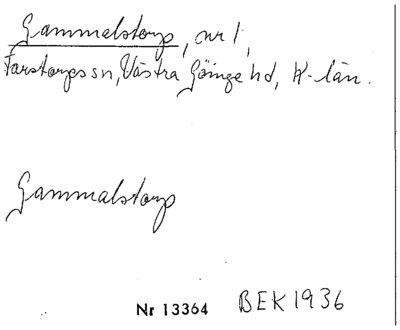 Gammalstorp, nr 1,
Farstorps sn, Västra Göinge hd, K-län.
Gammalstorp
Nr 13364 BEK 1936